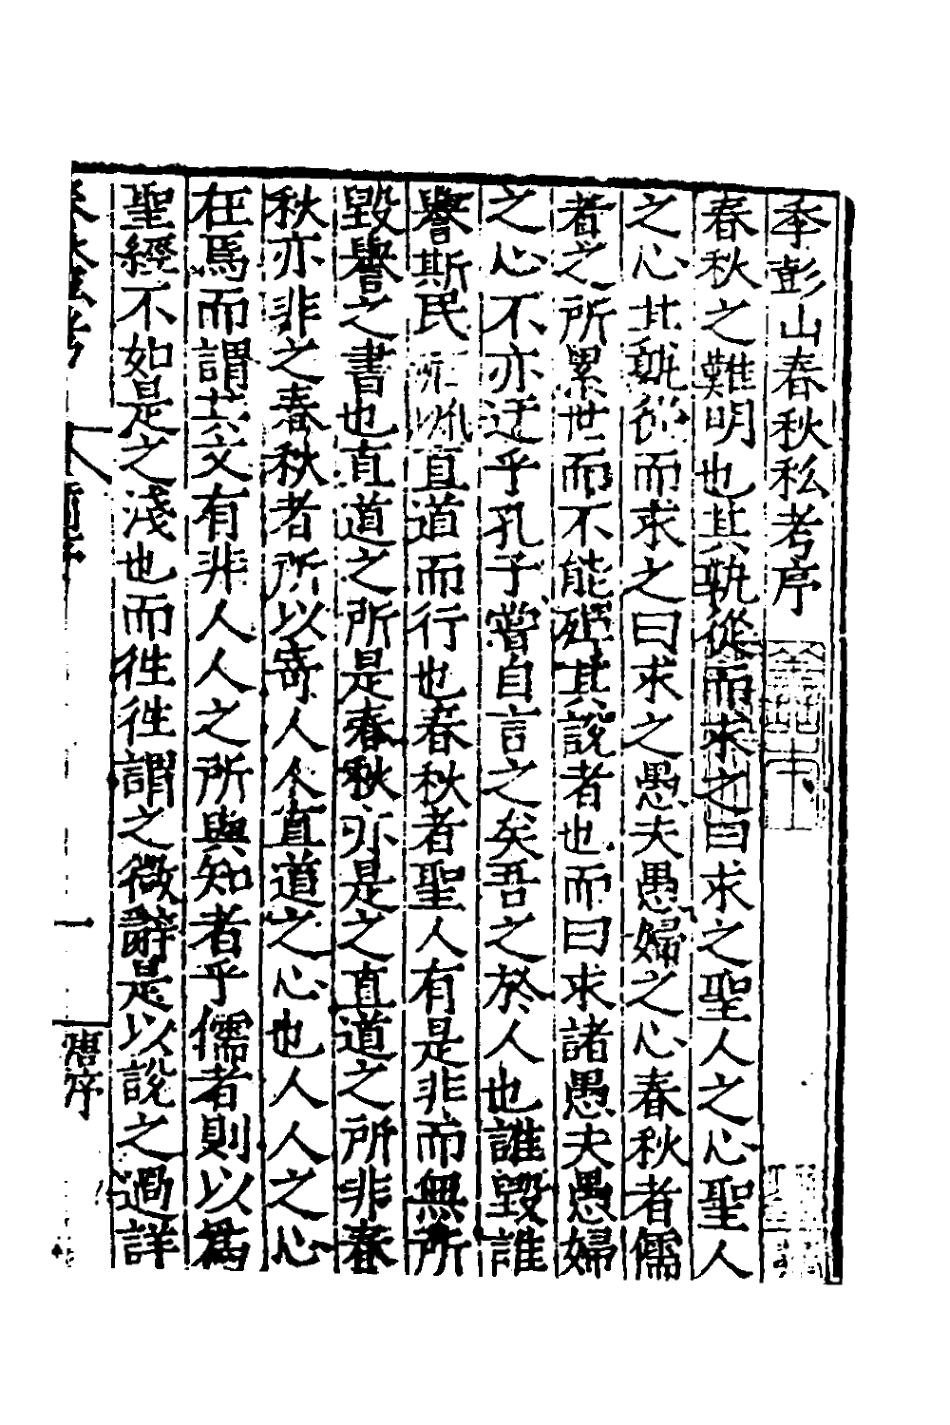 季彭山春秋私考序
春秋之難明也其孰從而求之曰求之聖人之心聖人
之心其孰從而求之曰求之愚夫愚婦之心春秋者儒
者之所累世而不能殫其說者也而曰求諸愚夫愚婦
之心不亦迂乎孔子嘗自言之矣吾之於人也誰毀誰
譽斯民 直道而行也春秋者聖人有是非而無所
毀譽之書也直道之所是春秋亦是之直道之所非春
秋亦非之春秋者所以寄人人直道之心也人人之心
在焉而謂其文有非人人之所與知者乎儒者則以為
聖經不如是之淺也而徃徃謂之微辭是以說之過詳
一
唐序